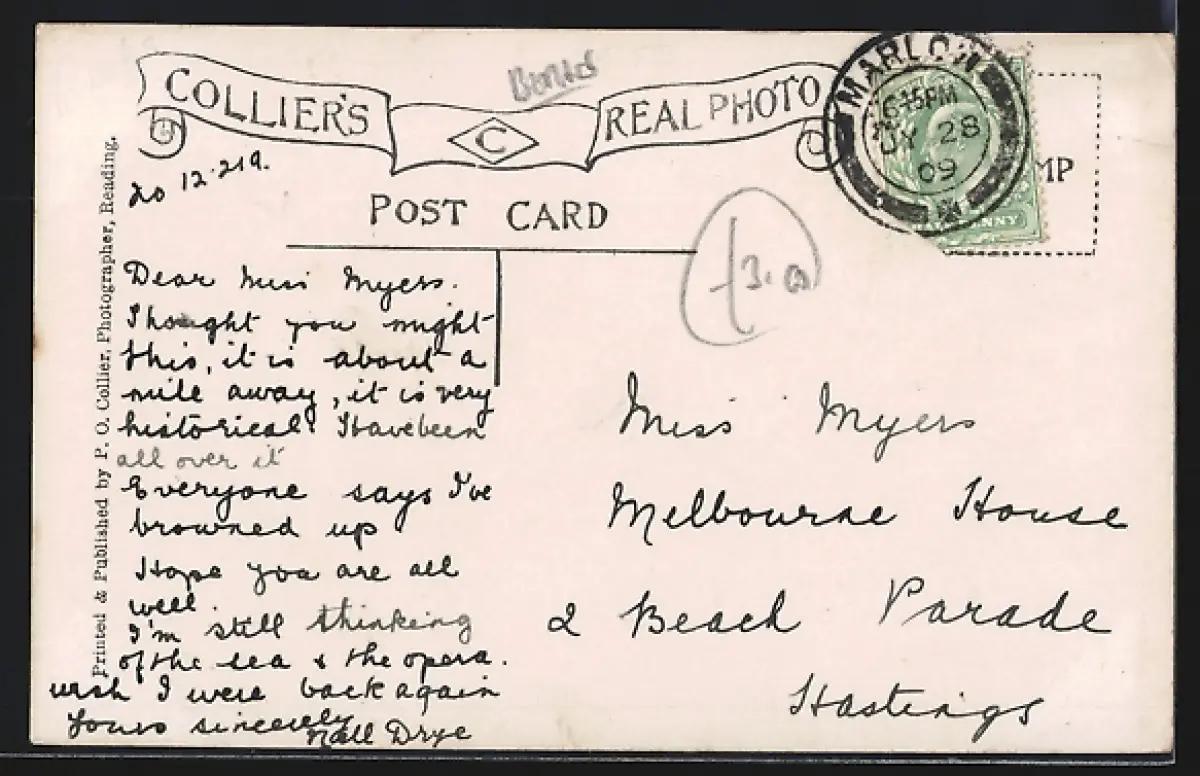 COLLIER'S C REAL PHOTO
No 12.219.
POST CARD
MARLOW
6-15PM
28
09
MP
NNY
Printed & Published by P. O. Collier, Photographer, Reading.
Dear Miss Myers.
Thought you might
this, it is about a
mile away, it is very
historical. Have been
all over it
Everyone says I've
browned up
Hope you are all
well.
I'm still thinking
of the sea & the opera.
wish I were back again
Yours sincerely
Nell Drye
Miss Myers
Melbourne House
2 Beach Parade
Hastings